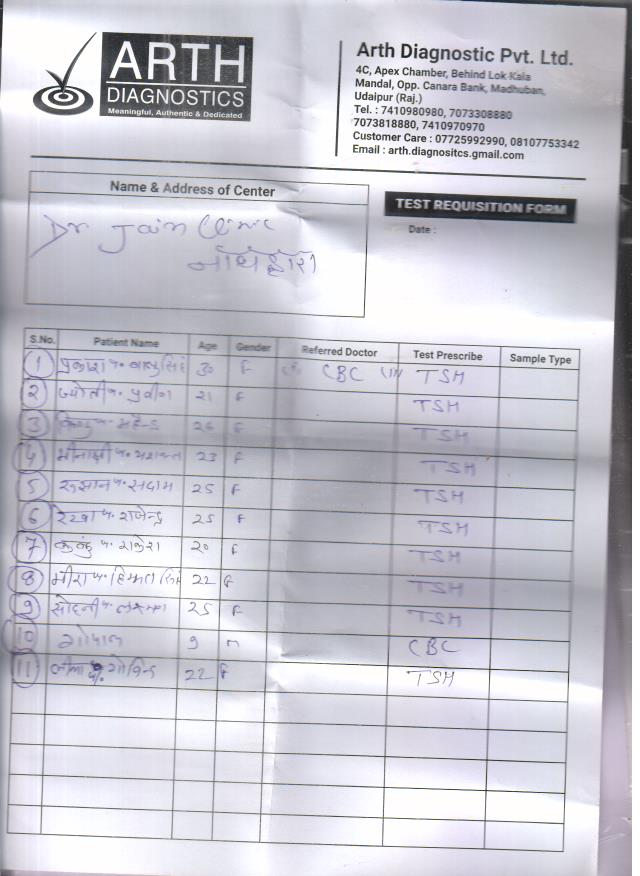 ARTH
DIAGNOSTICS
Meaningful, Authentic & Dedicated
Arth Diagnostic Pvt. Ltd.
4C, Apex Chamber, Behind Lok Kala
Mandal, Opp. Canara Bank, Madhuban,
Udaipur (Raj.)
Tel. : 7410980980, 7073308880
7073818880, 7410970970
Customer Care : 07725992990, 08107753342
Email : arth.diagnositcs.gmail.com
Name & Address of Center
TEST REQUISITION FORM
Date :
Dr Jain Clinic
नाथद्वारा
S.No. Patient Name Age Gender Referred Doctor Test Prescribe Sample Type
1 प्रकाश प. बाबुसिंह 30 F CBC TSH
2 ज्योती प. प्रवीण 21 F TSH
3 प. महेन्द्र 26 F TSH
4 मीनाक्षी प. यशवन्त 23 F TSH
5 रुखसान प. सद्दाम 25 F TSH
6 रेखा प. राजेन्द्र 25 F TSH
7 प. राकेश 20 F TSH
8 मीरा प. हिम्मत सिंह 22 F TSH
9 सोहनी प. लक्ष्मण 25 F TSH
10 गोपाल 9 m CBC
11 लीला प. गोविन्द 22 F TSH